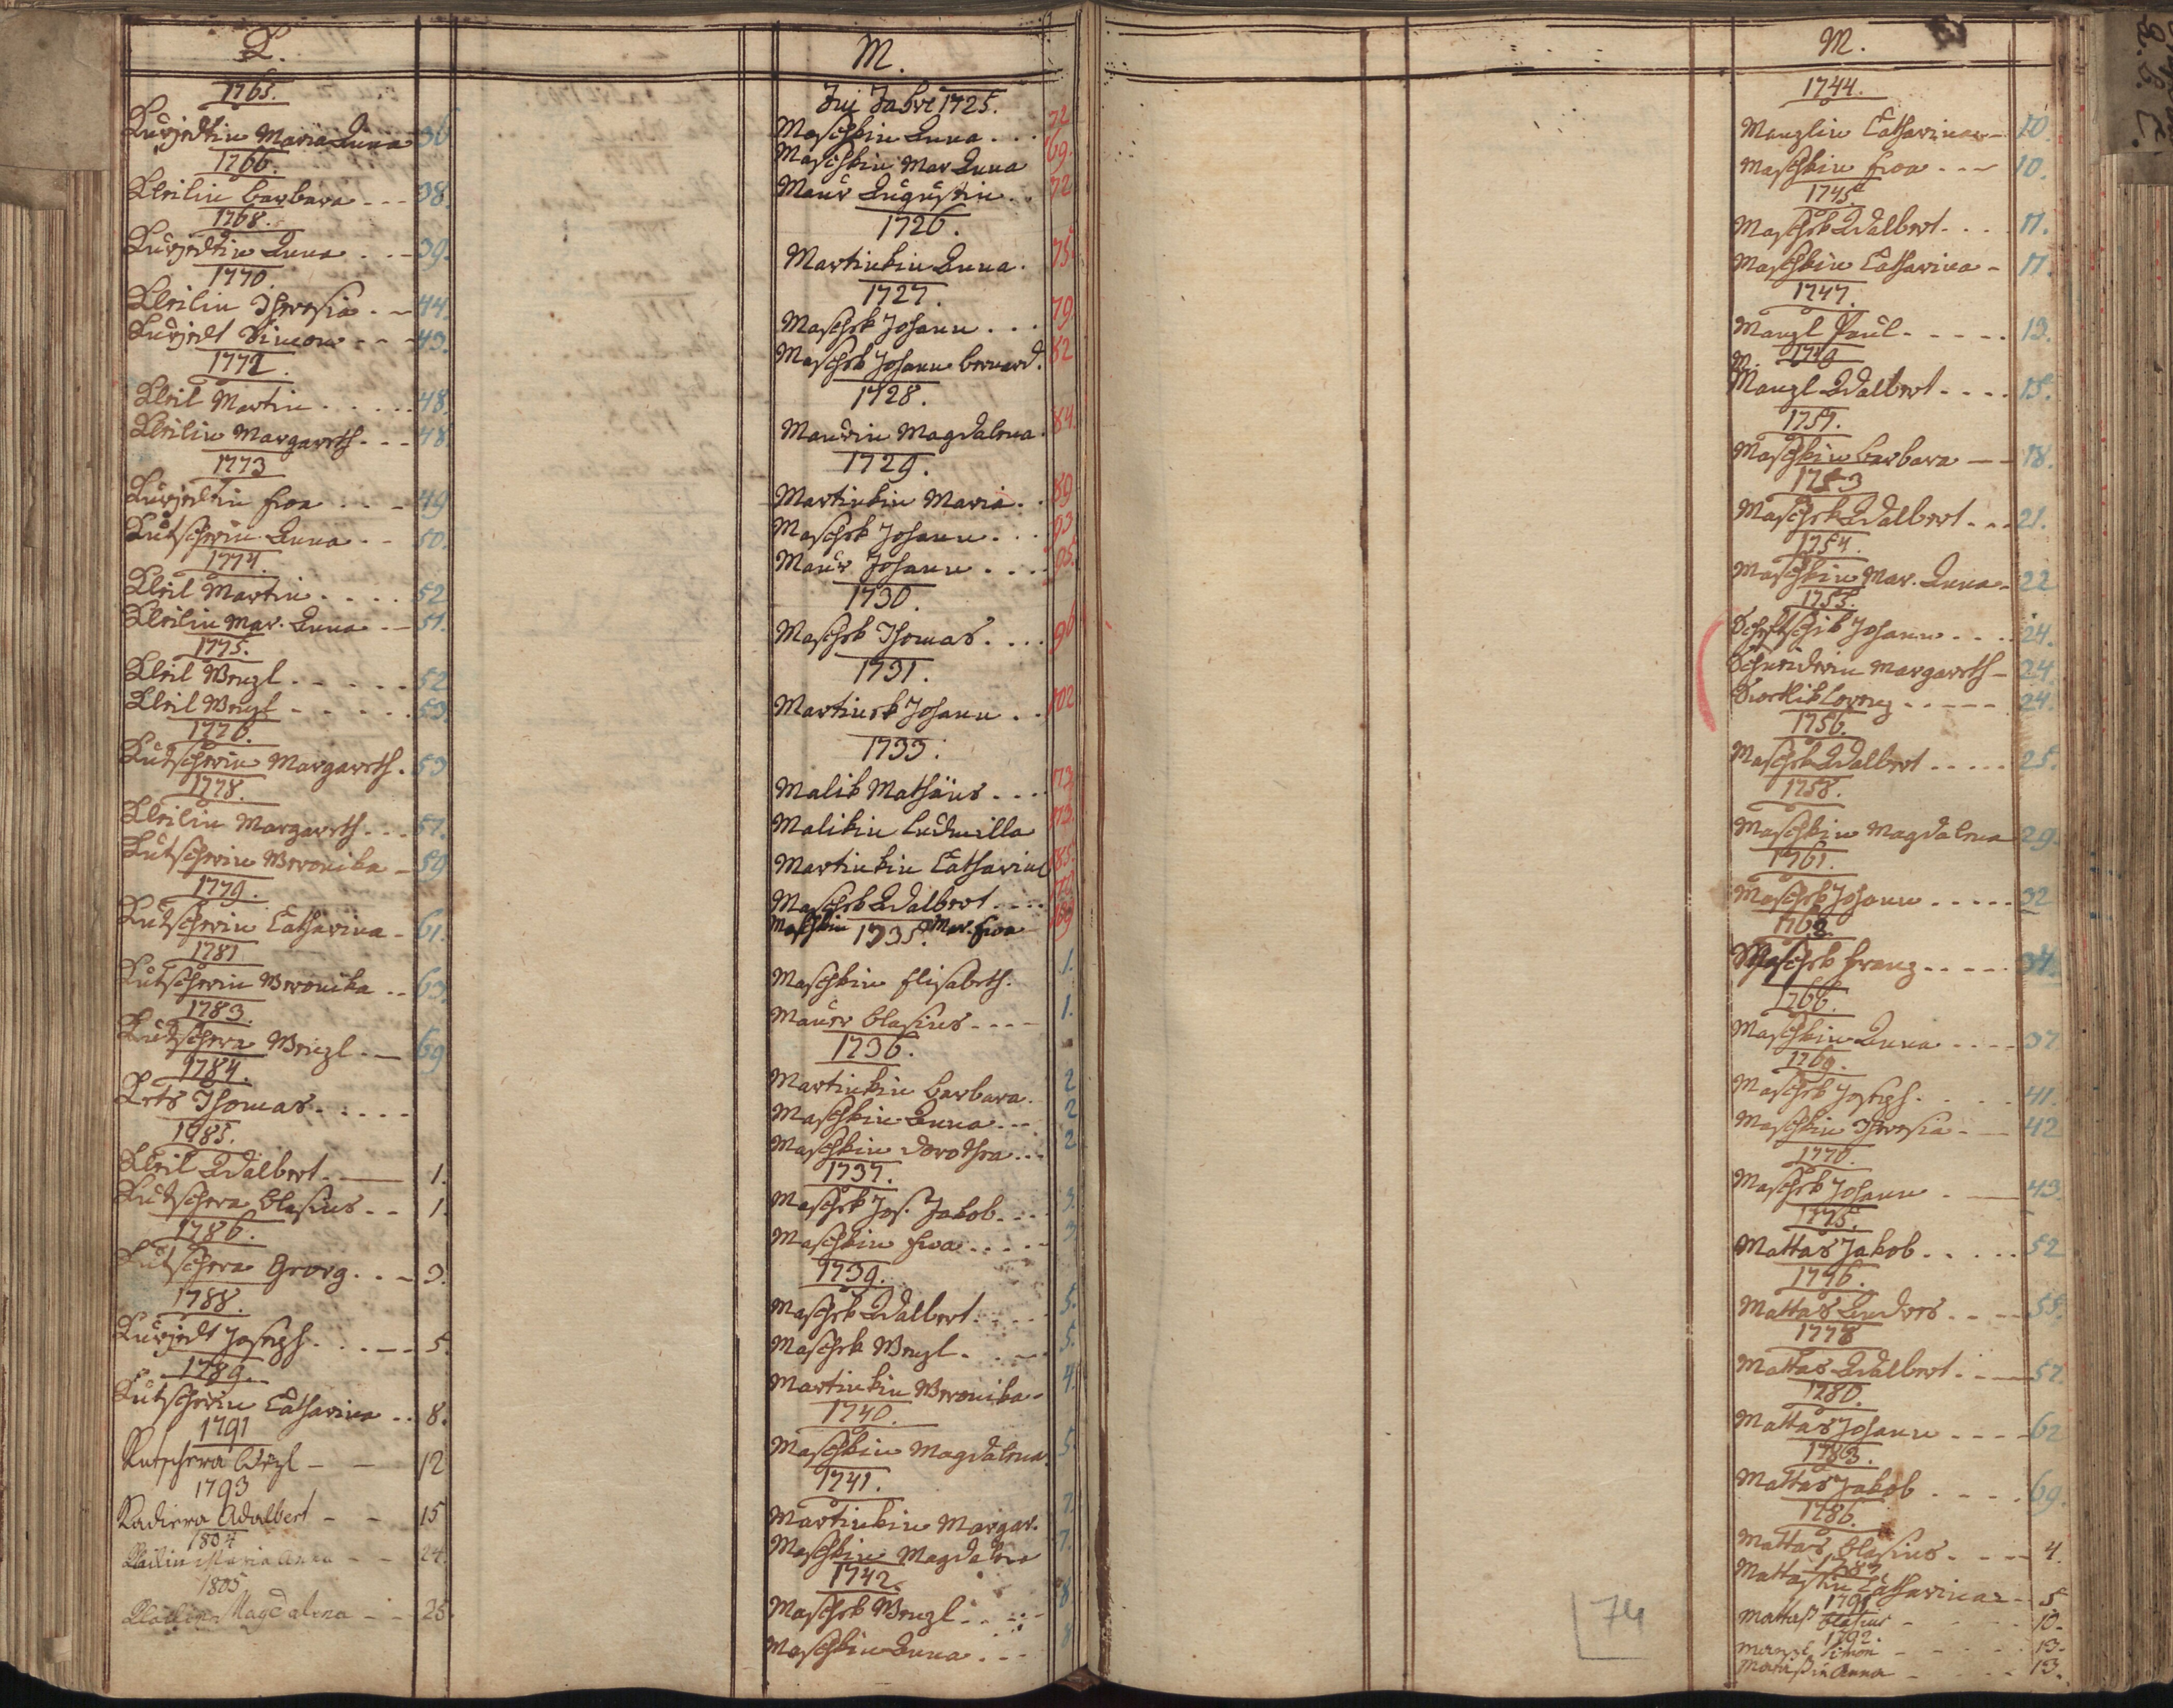 K.
1765.
Kurzedtin Maria Anna 36
1766.
Kleilin Barbara - - - 38.
1768.
Kurzedtin Anna . . - 39.
1770.
Kleilin Theresia . - 44.
Kurzedt Simon - - - 43.
1772.
Kleil Martin . . . . . 48.
Kleilin Margareth - - - 48
1773
Kurzedtin Eva . . . - 49
Kutscherin Anna - - 50.
1774.
Kleil Martin . . . . 52
Kleilin Mar. Anna - - 51.
1775.
Kleil Wenzl . - - - . . 52
Kleil Wenzl - - - - . . 53.
1776.
Kutscherin Margareth . 53
1778.
Kleilin Margareth . . . 57.
Kutscherin Veronika - 59
1779.
Kutscherin Catharina - 61.
1781
Kutscherin Veronika . . 63.
1783.
Kutschera Wenzl . — 69
1784.
Thomas . . . . . .
1785.
Kleil Adalbert . — 1.
Kutschera Blasius . - 1.
1786.
Kutschera Georg . . - 3.
1788.
Kurzedt Joseph . . . - - 5.
1789.
Kutscherin Catharina . . 8.
1791
Kutschera Wezl - - 12
1793
Kadiera Adalbert - - 15
1804
Maria Anna - - 24.
1805
Magdalena - - 25.
M.
Im Jahre 1725.
Maschkin Anna . . . 72
Maschkin Mar Anna 69.
Maur Augustin . . 72
1726.
Martinkin Anna . 75
1727.
Maschek Johann . . . 79
Maschek Johann Bernard. 82
1728.
Maurin Magdalena . 84.
1729.
Martinkin Maria . . 89
Maschek Johann . . . 93
Maur Johann . . . . 95.
1730.
Maschek Thomas . . . . 96
1731.
Martinek Johann . . 102
1733.
Malik Mathäus . . . . 173
Malikin Ludmilla 173.
Martinkin Catharina 185.
Maschek Adalbert . . . .
Maschkin Mar. Eva 169
1735.
Maschkin Elisabeth. 1.
Mauer Blasius . - - - 1.
1736.
Martinkin Barbara . 2
Maschkin Anna . - . 2
Maschkin Dorothea . . . 2
1737.
Maschek Jos. Jakob . . . 3.
Maschkin Eva . . . . - 3
1739.
Maschek Adalbert . . . . 5.
Maschek Wenzl . . - . 5.
Martinkin Veronika - 4.
1740.
Maschkin Magdalena. 5.
1741.
Martinkin Margar. 7
Maschkin Magdalena 7.
1742.
Maschek Wenzl . . - . - 8
Maschkin Anna . . - 8
M.
1744.
Manzlin Catharina - 10.
Maschkin Eva . - - 10.
1745.
Maschek Adalbert . . . . 11.
Maschkin Catharina - 11.
1747.
Manzl Paul . - - - - . 13.
M. 1749
Manzl Adalbert . - - . 15.
1751.
Maschkin Barbara - - 18.
1753
Maschek Adalbert . . . 21.
1754.
Maschkin Mar. Anna - 22
1755.
Johann . . . . 24.
Schneiderin Margareth - 24
Lorenz . . - - - 24.
1756.
Maschek Adalbert . . . . . 25.
1758.
Maschkin Magdalena 29.
1761.
Maschek Johann . . . . . 32
1763.
Maschek Franz . . . . . 34.
1766.
Maschkin Anna . . . . 37
1769.
Maschek Joseph . . . . . 41.
Maschkin Theresia - — 42
1770.
Maschek Johann . — 43.
1775.
Mattas Jakob . . . . . 52
1776.
Mattas Andres . . - - 55.
1778
Mattas Adalbert . . - - 57.
1780.
Mattas Johann . - - - 62
1783.
Mattas Jakob . . - . . 69.
1786.
Mattas Blasius . . - - 4.
1787
Mattasin Catharina - - 5
1791
Mattas Blasius - . . 10.
1792.
Simon - - - - 13.
Mattaßin Anna - - - 13.
74